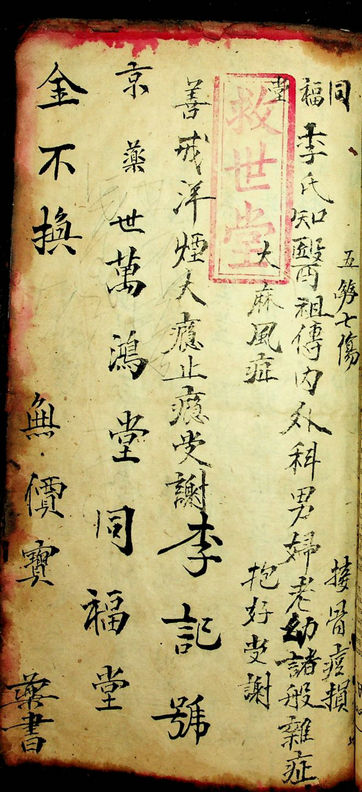 同福堂
五劳七傷
接骨痘損
李氏知醫祖傳内外科男婦老幼諸般雜症
大麻風症
抱好受謝
救世堂
善戒洋煙大癮止癮受謝李記號
京藥世萬鴻堂同福堂
金不換無價寶藥書